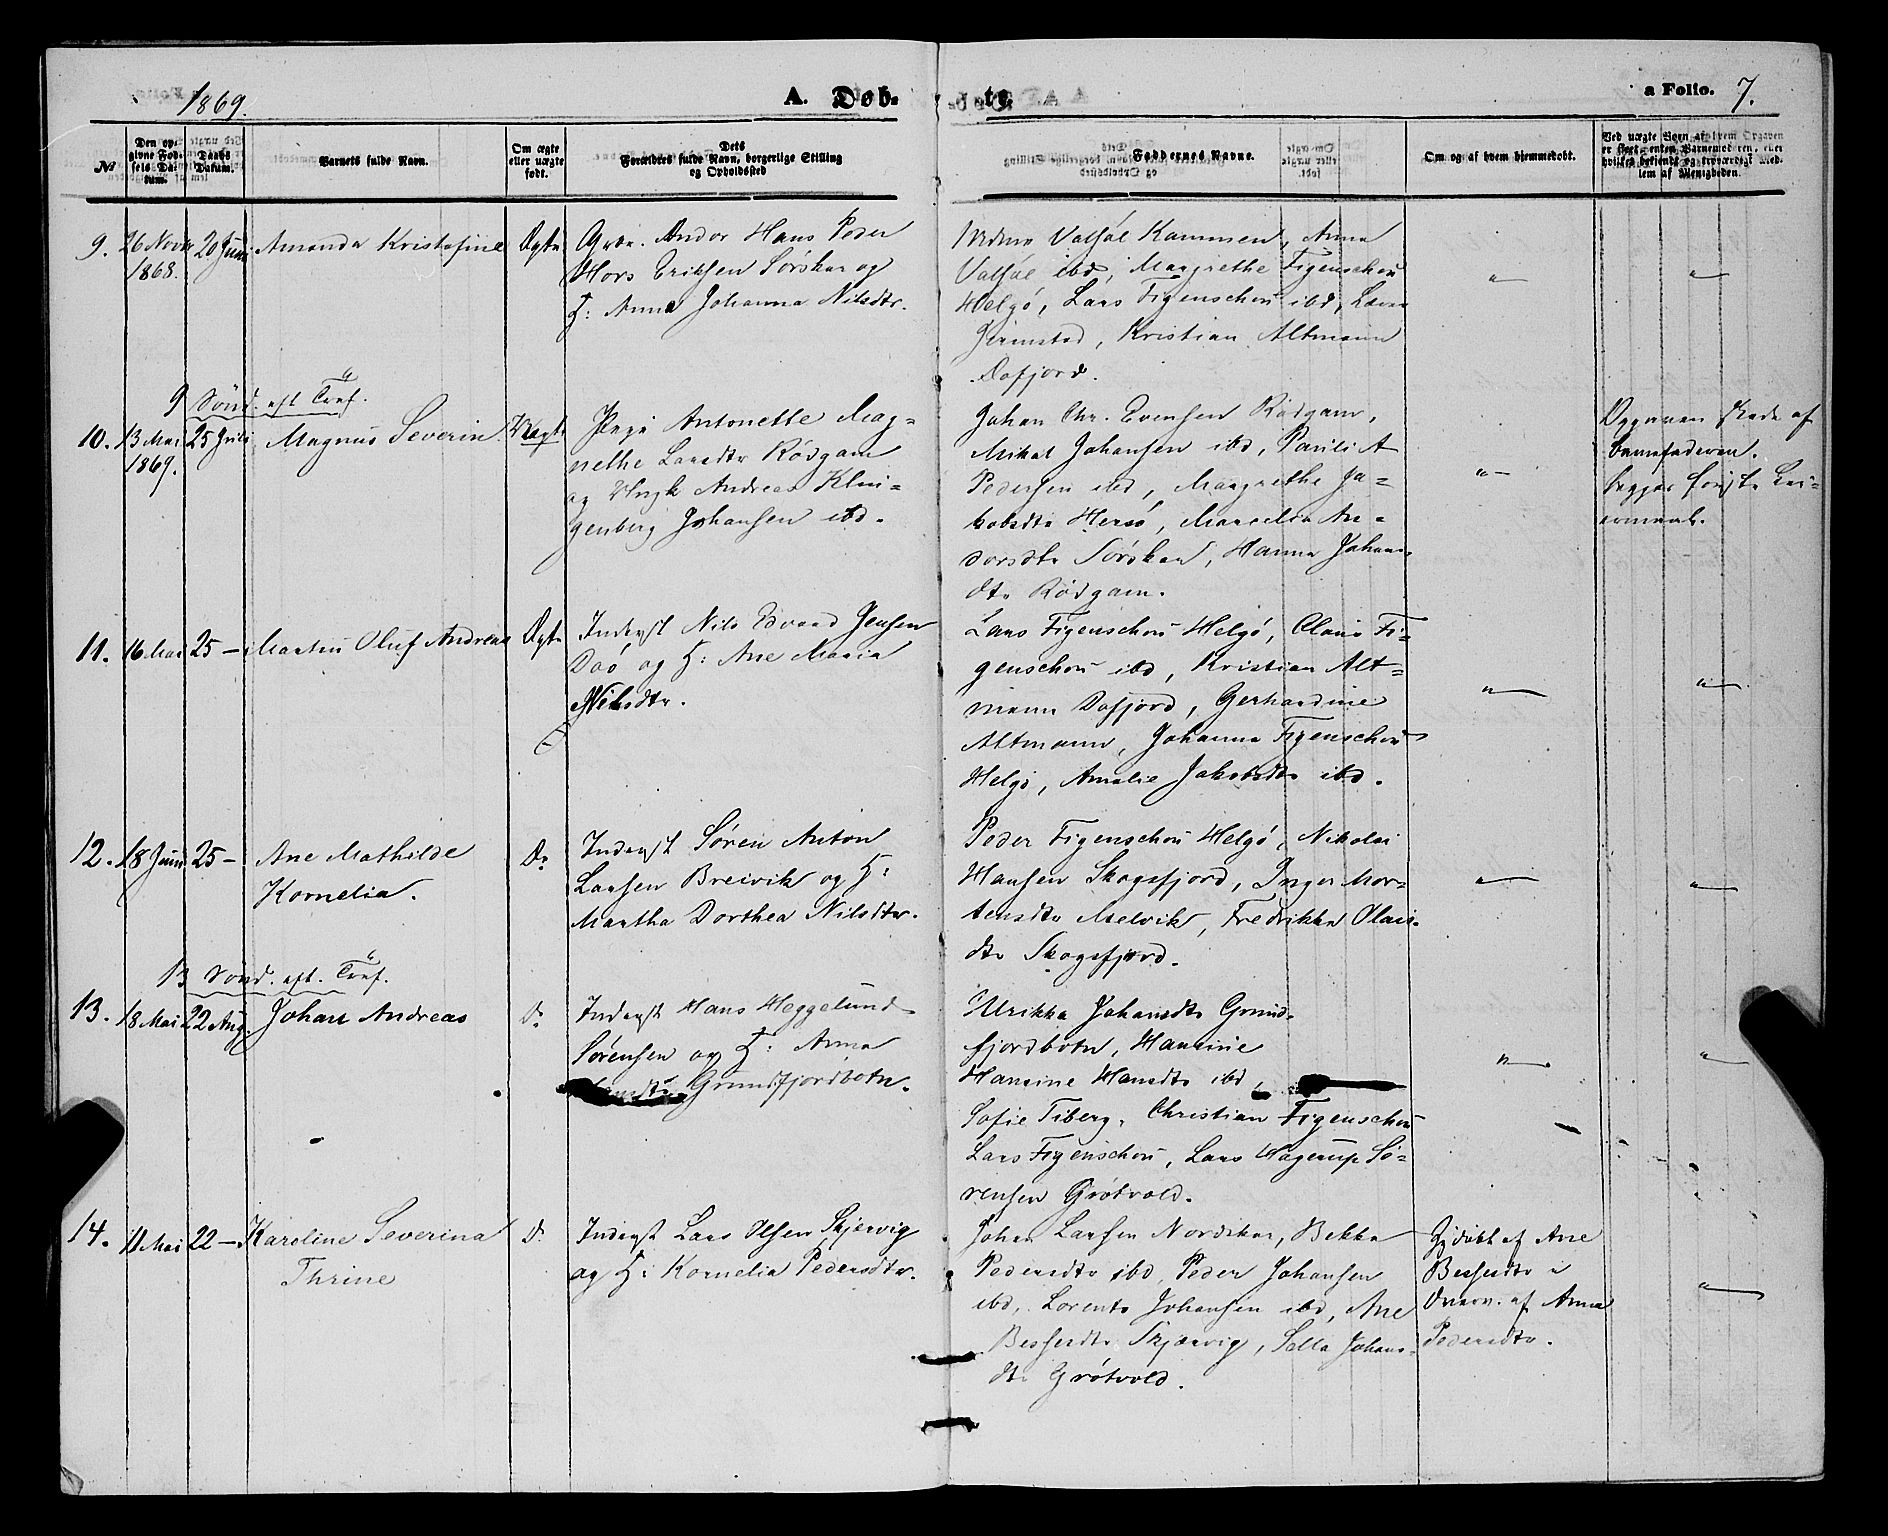 1869.
A. Døb-
te.
a Folio. 7.
№
Den op-
givne Fød-
sels Da-
tum.
Daabs
Datum.
Barnets fulde Navn.
Om ægte
eller uægte
født.
Dets
Forældres fulde Navn, borgerlige Stilling
og Opholdssted
Faddernes Navne.
Om og af hvem hjemmedøbt.
Ved uægte Børn af hvem Opgaven
er skeet, enten Barnemoderen, eller
hvilket bekjendt og troværdigt Med-
lem af Menigheden.
9.
26 Novbr
1868.
20 Juni
Amanda Kristofine
Ægte
Andor Hans Peder
Eriksen Sørskar og
H: Anna Johanna Nilsdtr.
Kammen, Anna
ibd, Margrethe Figenschou
Helgø, Lars Figenschou ibd,
Kristian Altmann
Dafjord.
9 Sönd. eft Tref.
10.
13 Mai
1869.
25 Juli
Magnus Severin
Uægte
Pige Antonette Mag-
nethe Larsdtr Rödgam
og Ungk Andreas Klin-
genberg Johansen ibd.
Johan Chr. Evensen Rödgam,
Mikal Johansen ibd, Pauli A
Pedersen ibd, Margrethe Ja-
kobsdtr Hersö, Marselie An-
dorsdtr Sörskar, Hanna Johans
dtr Rödgam.
"
Opgaven skede af
barnefaderen.
begges første Lei-
ermaal.
11.
16 Mai
25 —
Martin Oluf Andreas
Ægte
Inderst Nils Edvard Jensen
og H: Ane Maria
Nilsdtr.
Lars Figenschou Helgö, Claus Fi-
genschou ibd, Kristian Alt-
mann Dafjord, Gerhardine
Altmann, Johanna Figenschou
Helgö, Amalie Jakobsdtr ibd.
"
"
12.
18 Juni
25 —
Ane Mathilde
Kornelia.
Do
Inderst Søren Anton
Larsen Breivik og H:
Martha Dorthea Nilsdtr.
Peder Figenschou Helgö, Nikolai
Hansen Skogsfjord, Inger Mor-
tensdtr Melvik, Fredrikke Olais-
dtr Skogsfjord.
"
"
13 Sönd. eft. Tref.
13.
18 Mai
22 Aug.
Johan Andreas
Do
Inderst Hans Heggelund
Sørensen og H: Anna
Hansdtr Grundfjordbotn.
Ulrikka Johansdtr Grund-
fjordbotn, Hansine
Hansine Hansdtr ibd,
Sofie Tiberg, Christian Figenschou
Lars Figenschou, Lars Hagerup Sö-
rensen Grötvold.
"
"
14.
11 Mai
22 —
Karoline Severina
Thrine
Do
Inderst Lars Olsen Skjærvig
og H: Kornelia Pedersdtr.
Johan Larsen Nordskar, Bekka
Pedersdtr ibd, Peder Johansen
ibd, Lorents Johansen ibd, Ane
Skjærvig, Sella Johans-
dtr Grötvold.
Hjdøbt af Ane
af Anna
Pedersdtr.
"